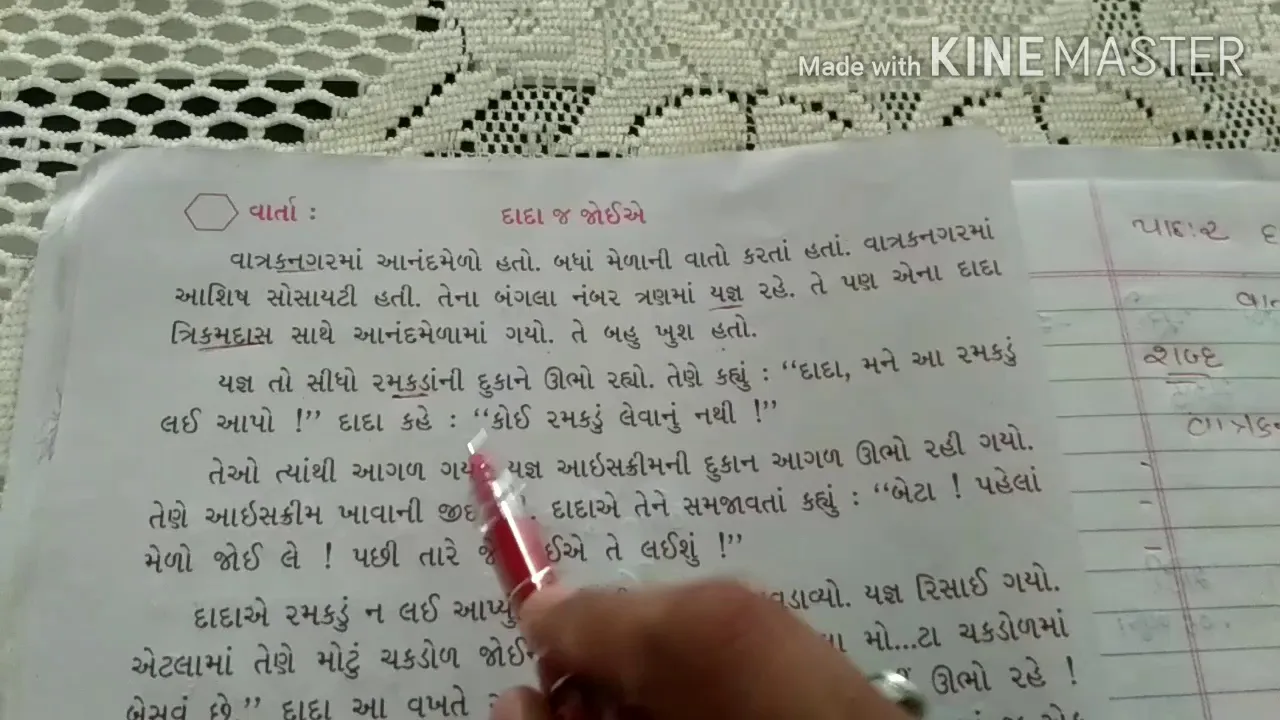 Made with KINEMASTER
વાર્તા : દાદા જ જોઈએ
વાત્રકનગરમાં આનંદમેળો હતો. બધાં મેળાની વાતો કરતાં હતાં. વાત્રકનગરમાં
આશિષ સોસાયટી હતી. તેના બંગલા નંબર ત્રણમાં યજ્ઞ રહે. તે પણ એના દાદા
ત્રિકમદાસ સાથે આનંદમેળામાં ગયો. તે બહુ ખુશ હતો.
યજ્ઞ તો સીધો રમકડાંની દુકાને ઊભો રહ્યો. તેણે કહ્યું : “દાદા, મને આ રમકડું
લઈ આપો !” દાદા કહે : “કોઈ રમકડું લેવાનું નથી !”
તેઓ ત્યાંથી આગળ યજ્ઞ આઇસક્રીમની દુકાન આગળ ઊભો રહી ગયો.
તેણે આઇસક્રીમ ખાવાની દાદાએ તેને સમજાવતાં કહ્યું : “બેટા ! પહેલાં
મેળો જોઈ લે ! પછી તારે તે લઈશું !”
દાદાએ રમકડું ન લઈ યજ્ઞ રિસાઈ ગયો.
એટલામાં તેણે મોટું ચકડોળ મો...ટા ચકડોળમાં
બેસવું છે.” દાદા આ વખતે ઊભો રહે !
પાઠ્ય
શબ્દ